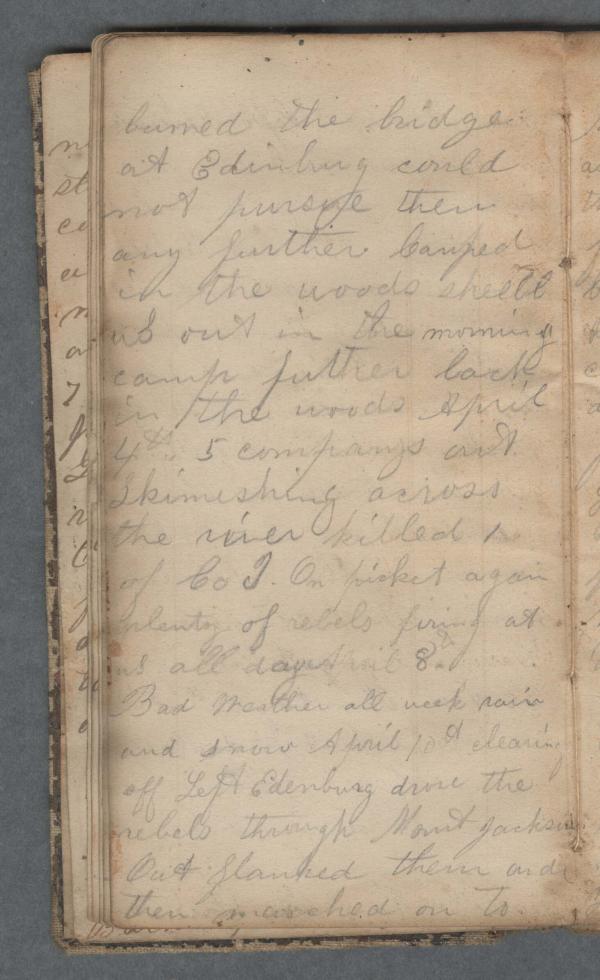 burned the bridge
at Edinburg could
not pursue them
any further Camped
in the woods shelld
us out in the morning
camp futher back
in the woods April
4th 5 companys out
Skimishing across
the river killed 1
of Co I. On picket again
plenty of rebels firing at
us all day April 8
Bad Weather all week rain
and snow April clearing
off Left Edenburg drove the
rebels through Mount Jackson
Out flanked them and
then marched on to